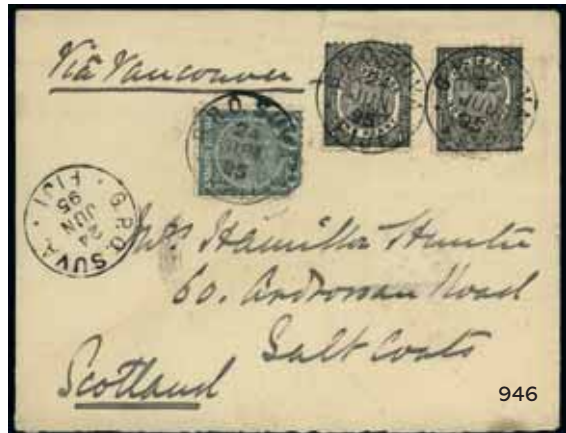 Via Vancouver
G.P.O. SUVA
24
JUN
95
FIJI
G.P.O. SUVA
24
JUN
95
FIJI
G.P.O. SUVA
24
JUN
95
G.P.O. SUVA.
24
JUN
95
FIJI
Mrs Hamilton Hunter
60. Ardrossan Road
Saltcoats
Scotland
946